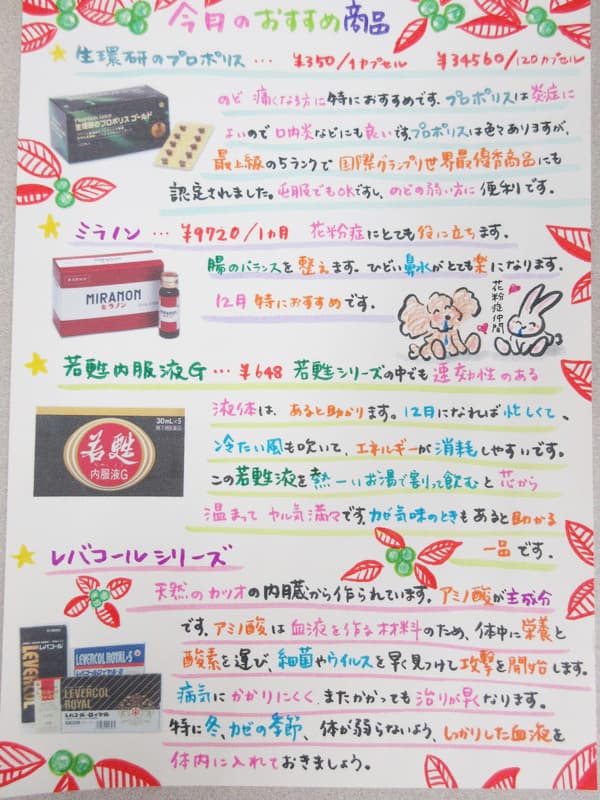 今月のおすすめ商品
生環研のプロポリス… ¥350/1カプセル ¥34560/120カプセル
生環研のプロポリス ゴールド
のど 痛くなる方に特におすすめです。プロポリスは炎症に
よいので口内炎などにも良いです。プロポリスは色々ありますが、
最上級の5ランクで国際グランプリ世界最優秀商品にも
認定されました。屯服でもOKですし、のどの弱い方に便利です。
ミラノン… ¥9720/1カ月 花粉症にとても役に立ちます。
MIRANON
ミラノン
腸のバランスを整えます。ひどい鼻水がとても楽になります。
12月 特におすすめです。
花粉症仲間
若甦内服液G… ¥648 若甦シリーズの中でも速効性のある
30mL×5
若甦
内服液G
液体は、あると助かります。12月になれば忙しくて、
冷たい風も吹いて、エネルギーが消耗しやすいです。
この若甦液を熱ーいお湯で割って飲むと芯から
温まって ヤル気満々です。カゼ気味のときもあると助かる
一品です。
レバコールシリーズ
天然のカツオの内臓から作られています。アミノ酸が主成分
です。アミノ酸は血液を作る材料のため、体中に栄養と
酸素を運び、細菌やウイルスを早く見つけて攻撃を開始します。
病気にかかりにくく、またかかっても治りが早くなります。
特に冬、カゼの季節、体が弱らないよう、しっかりした血液を
体内に入れておきましょう。
LEVERCOL
レバコール
LEVERCOL ROYAL-S
LEVERCOL
ROYAL
レバコール・ロイヤル